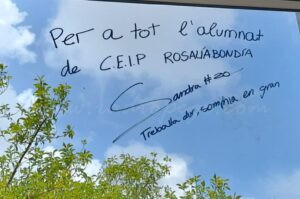 Per a tot l'alumnat
de C.E.I.P ROSALÍABONDÍA
Sandra #20
Treballa dur, somnia en gran